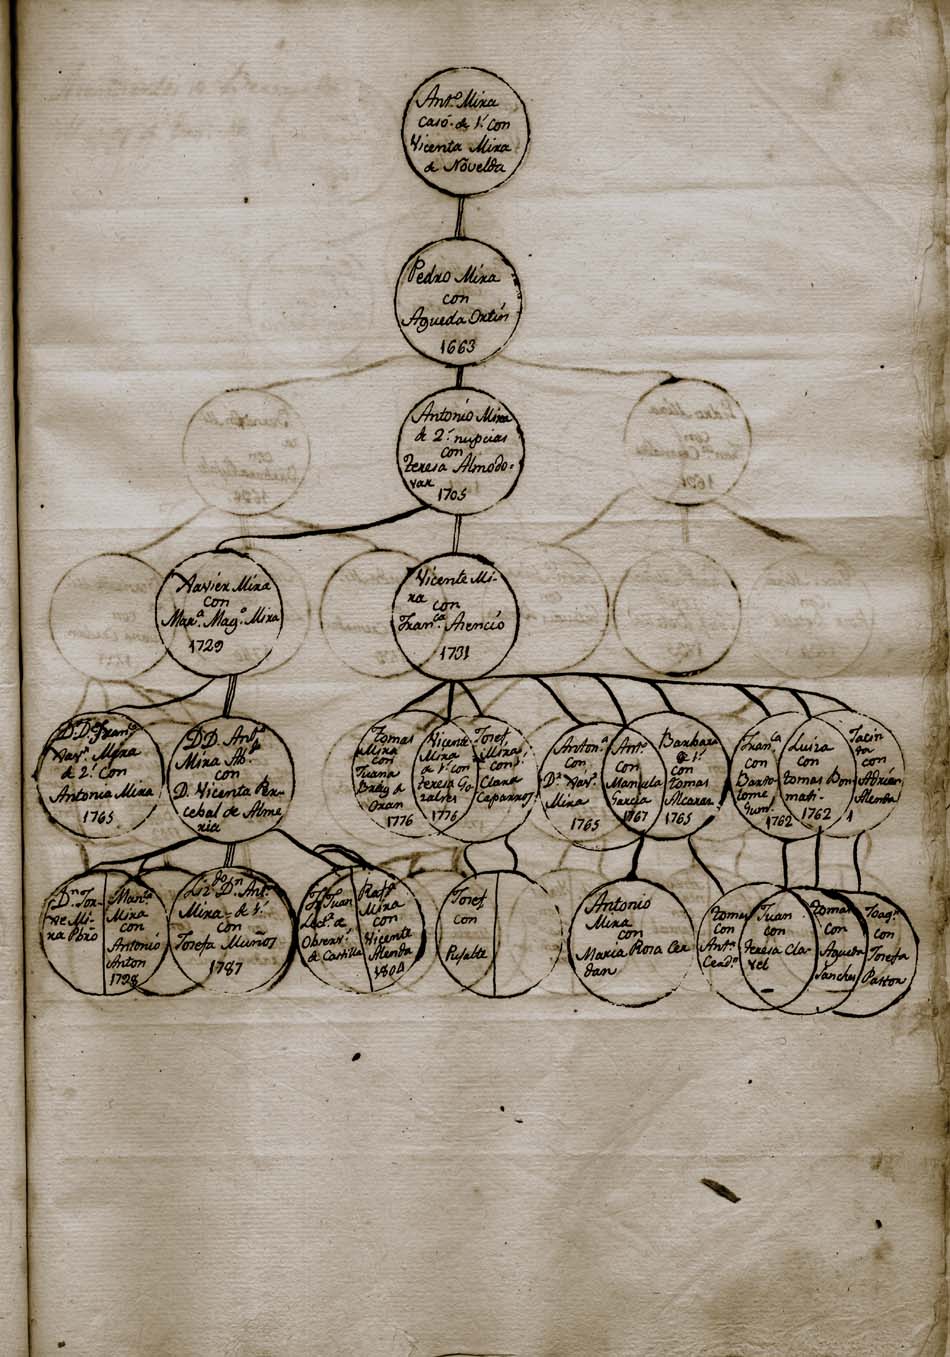 Ant.º Mira
casó de 1.ª con
Vicenta Mira
de Novelda
Pedro Mira
con
Agueda Ortin
1663
Antonio Mira
de 2.ª nupcias
con
Teresa Almodo-
var
1705
Xavier Mira
con
Mar.ª Mag.ª Mira
1729
Vicente Mi-
ra con
Fran.ca Asencio
1731
Xav.r Mira
de 2.ª con
Antonia Mira
1765
D.D. Ant.º
Mira Ab.
con
D. Vicenta Per-
cebal de Alme
ria
Tomas
Mira
con
Juana
Oran
1776
Vicente
Mira
de 1.ª con
Teresa Go-
zalves
1776
Josef
Mira
con
Clara
Caparros
Anton.ª
con
D.n Xav.r
Mira
1765
Ant.º
con
Manuela
Garcia
1767
Barbara
de 1.ª
con
Tomas
Alcaraz
1765
Fran.ca
con
Barto-
lome
1762
Luisa
con
Tomas Bon
mati
1762
Jacin
ta
con
Adrian
Alenda
ra Pbro
Mar.ª
Mira
con
Antonio
Anton
1798
D.n Ant.º
Mira de 1.ª
con
Josefa Muñoz
1787
Fr. Juan
Lect.r de
Observ.
de Castilla
Raf.l
Mira
con
Vicenta
Alenda
1804
Josef
con
Antonio
Mira
con
Maria Rosa Cer
dan
Tomas
con
Ant.ª
Juan
con
Teresa Clar
vel
Tomas
con
Agueda
Sanchez
Joaq.n
con
Josefa
Paston